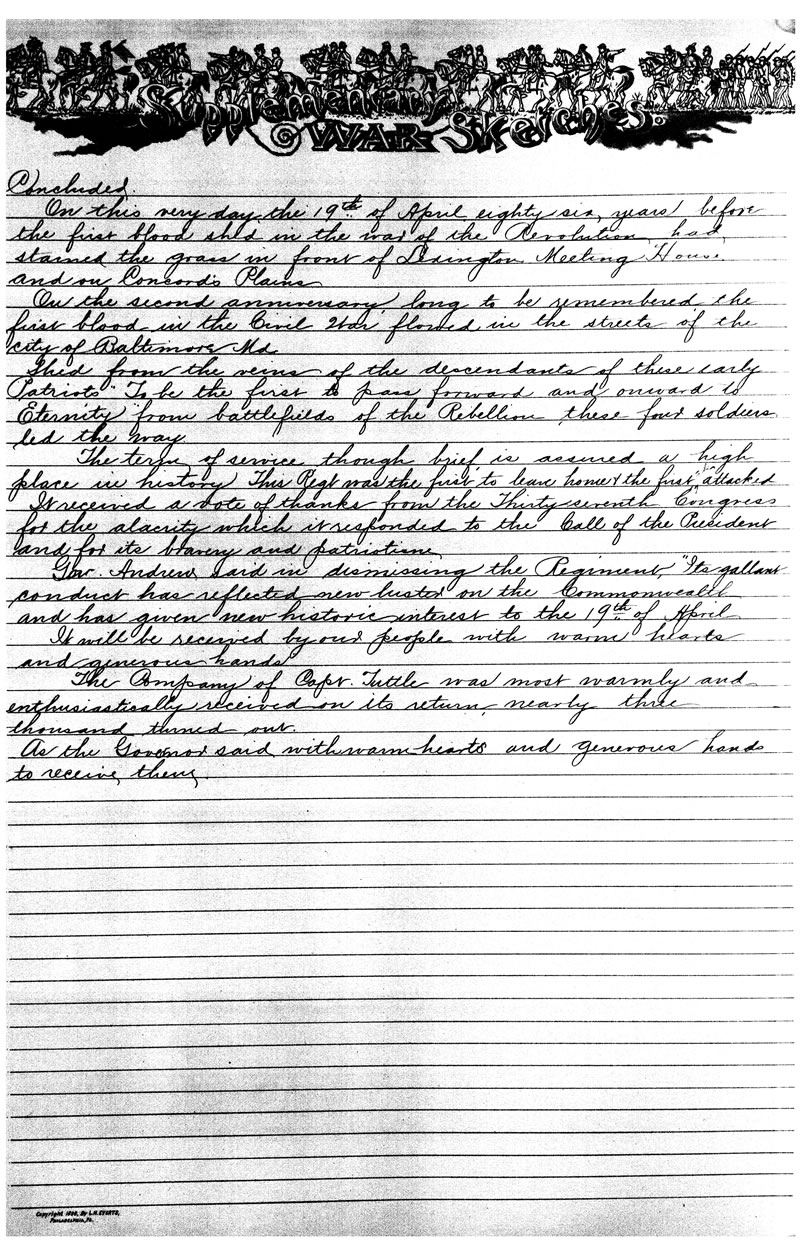 Supplementary
War Sketches.
Concluded.
On this very day the 19th of April eighty six years before
the first blood shed in the war of the Revolution had
stained the grass in front of Lexington Meeting House
and on Concord's Plains
On the second anniversary long to be remembered the
first blood in the Civil War flowed in the streets of the
city of Baltimore Md
Shed from the veins of the descendants of these early
Patriots" To be the first to pass forward and onward to
Eternity from battlefields of the Rebellion these four soldiers
led the way
The term of service though brief is assured a high
place in history This Regt was the first to leave home & the first attacked
It received a vote of thanks from the Thirty seventh Congress
for the alacrity which it responded to the Call of the President
and for its bravery and patriotism
Gov. Andrew said in dismissing the Regiment, "Its gallant
conduct has reflected new luster on the Commonwealth
and has given new historic interest to the 19th of April
It will be received by our people with warm hearts
and generous hands"
The Company of Capt. Tuttle was most warmly and
enthusiastically received on its return, nearly three
thousand turned out.
As the Governor said with warm hearts and generous hands
to receive them.
Copyright 1890, By L.H. Everts,
Philadelphia, Pa.